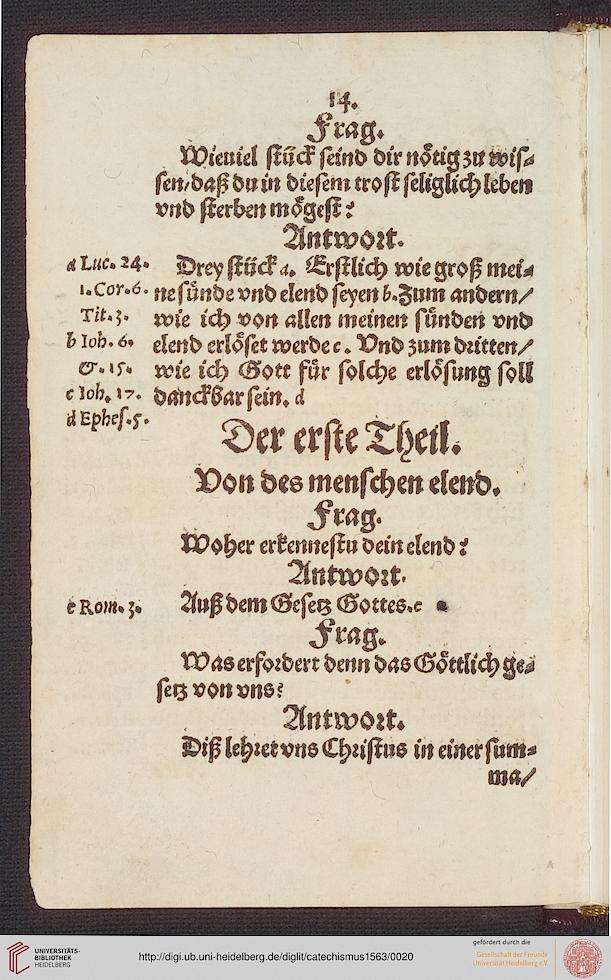 14.
Frag.
Wieuiel stück seind dir nötig zu wis⸗
sen/daß du in diesem trost seliglich leben
vnd sterben mögest?
Antwort.
a Luc. 24. Drey stück a. Erstlich wie groß mei⸗
1.Cor.6. ne sünde vnd elend seyen b. Zum andern/
Tit.3. wie ich von allen meinen sünden vnd
b Ioh. 6. elend erlöset werde c. Vnd zum dritten/
&. 15. wie ich Gott für solche erlösung soll
c Ioh. 17. danckbar sein. d
d Ephes.5.
Der erste Theil.
Von des menschen elend.
Frag.
Woher erkennestu dein elend?
Antwort.
e Rom. 3. Auß dem Gesetz Gottes. e
Frag.
Was erfordert denn das Göttlich ge⸗
setz von vns?
Antwort.
Diß lehret vns Christus in einer sum⸗
ma/
UNIVERSITÄTS-
BIBLIOTHEK
HEIDELBERG
http://digi.ub.uni-heidelberg.de/diglit/catechismus1563/0020
gefördert durch die
Gesellschaft der Freunde
Universität Heidelberg e.V.